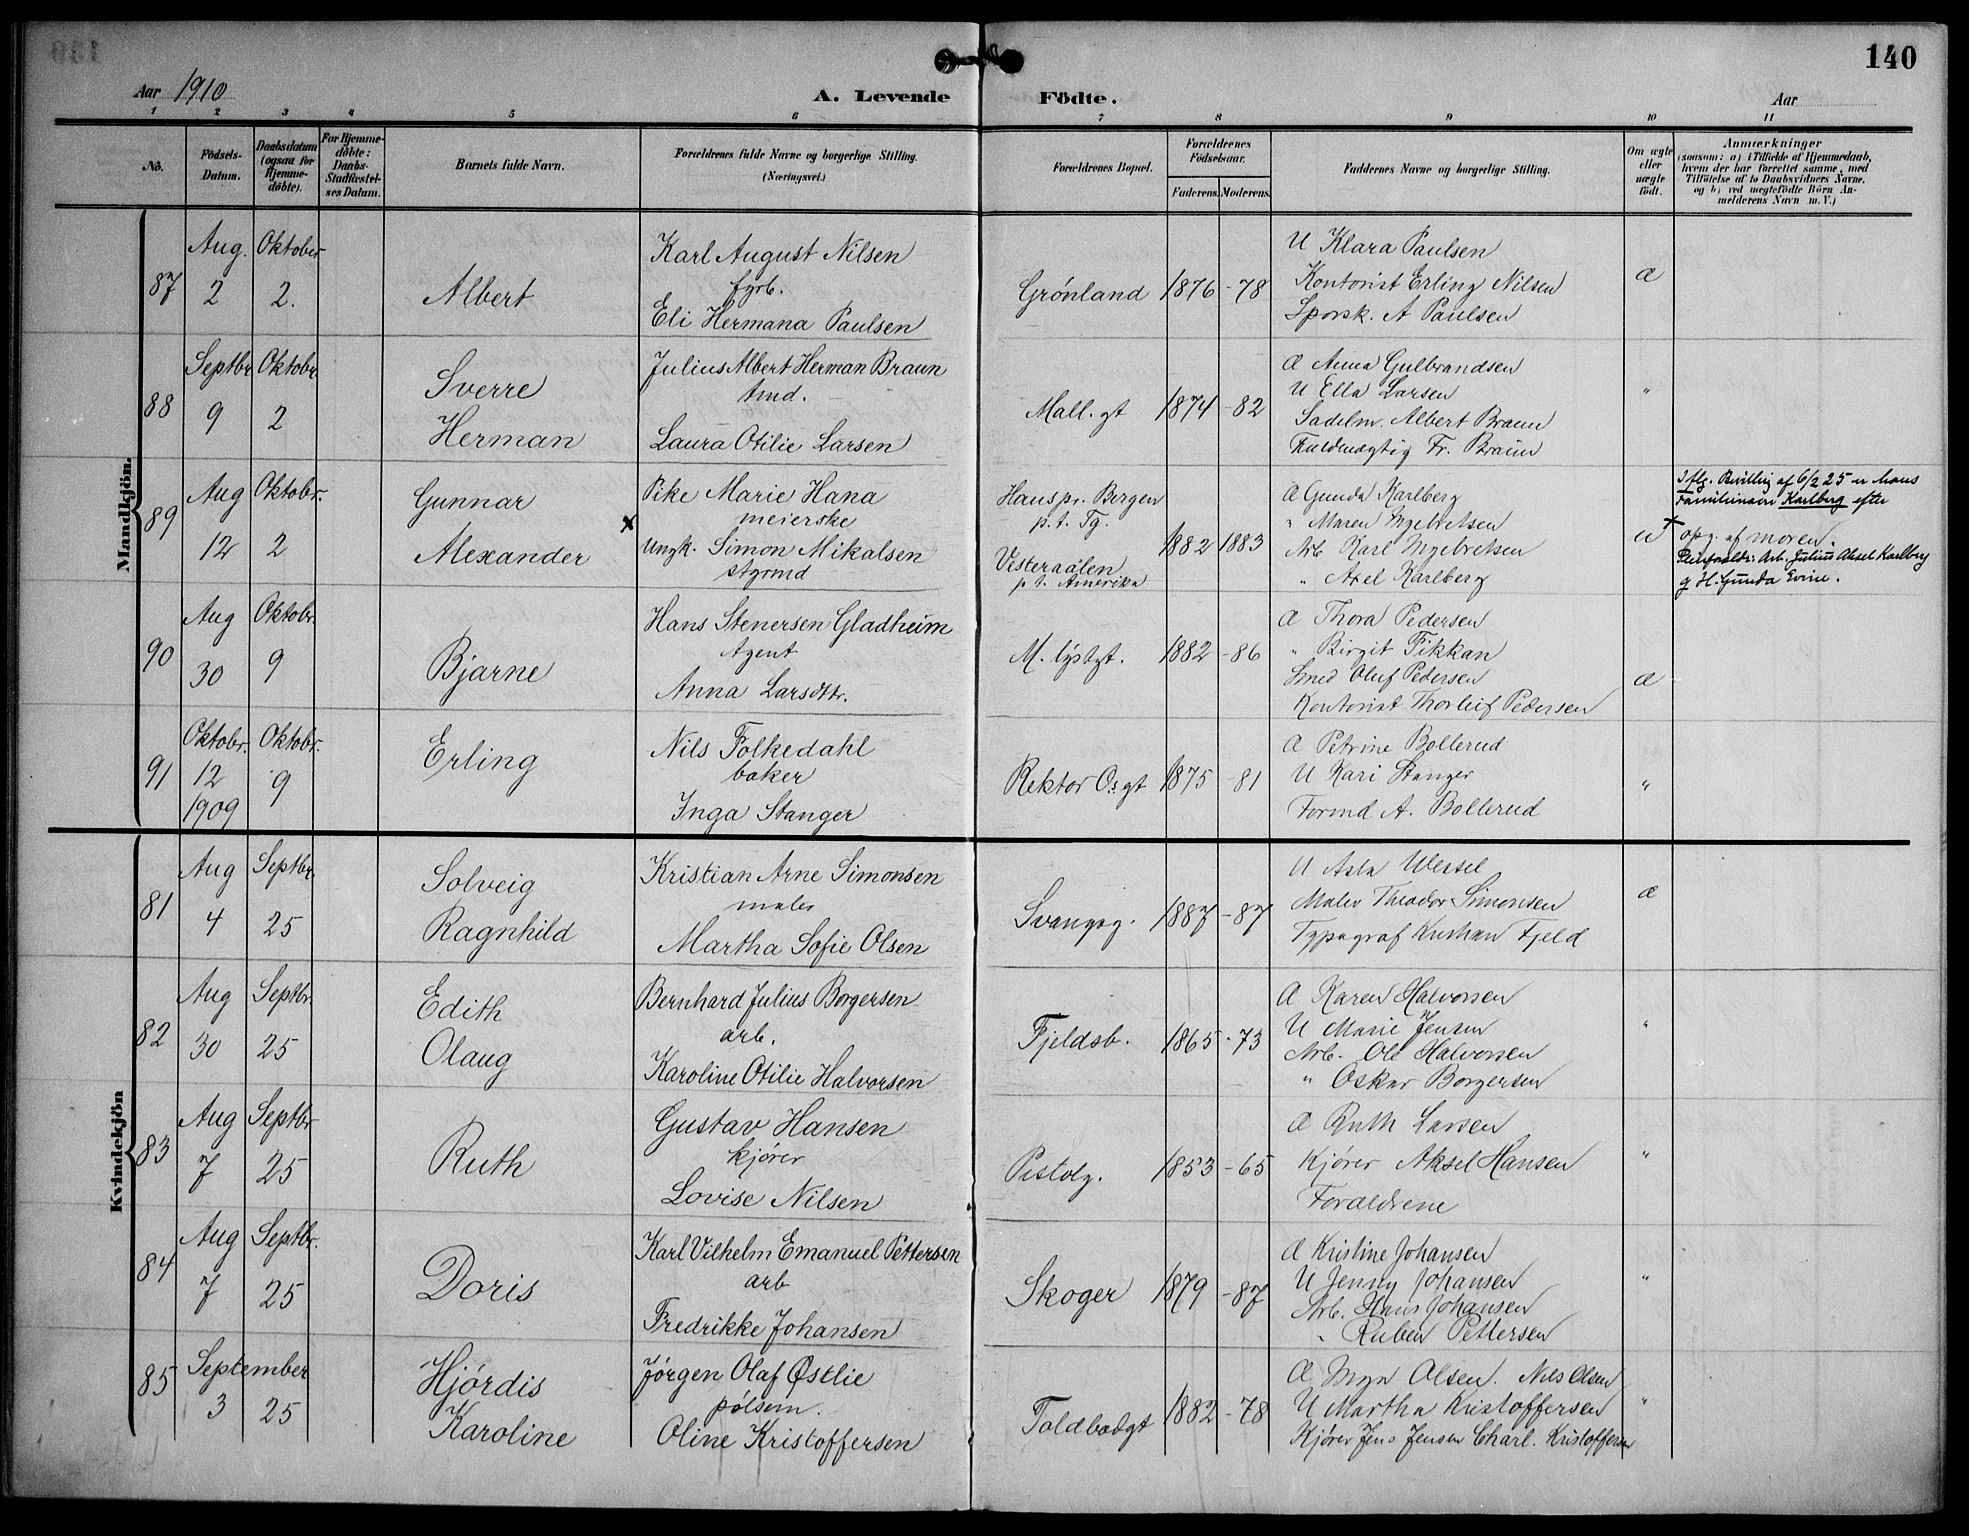 140
Aar 1910
A. Levende Födte.
Aar
1 2 3 4 5 6 7 8 9 10 11
No.
Födsels-Datum.
Daabsdatum (ogsaa for Hjemme-döbte).
For Hjemme-döbte: Daabs-Stadfæstel-ses Datum.
Barnets fulde Navn.
Forældrenes fulde Navne og borgerlige Stilling.
(Næringsvei.)
Forældrenes Bopæl.
Forældrenes Födselsaar.
Faderens. Moderens.
Faddernes Navne og borgerlige Stilling.
Om ægte eller uægte födt.
Anmærkninger
(saasom: a) i Tilfælde af Hjemmedaab,
hvem der har forrettet samme, med
Tilföielse af to Daabsvidners Navne.
og b) ved uægtefödte Börn An-
melderens Navn m. V.)
Mandkjön.
87
Aug. 2
Oktober 2.
Albert
Karl August Nilsen
fyrb.
Eli Hermana Paulsen
Grønland
1876 -78
U Klara Paulsen
Kontorist Erling Nilsen
Sporsk. A Paulsen
Æ
88
Septbr 9
Oktobr. 2
Sverre
Herman
Julius Albert Herman Braun
tmd.
Laura Otilie Larsen
Mall. gt
1874 -82
Æ Anna Gulbrandsen
U Ella Larsen
Sadelm. Albert Braun
Fuldmægtig Fr. Braun
"
89
Aug 12
Oktobr. 2
Gunnar
Alexander
Pike Marie Hana
meierske
x Ungk. Simon Mikalsen
styrmd
Hauspr. Bergen
p. t. Tg.
Vesteraalen
p. t. Amerika
1882 1883
Æ Gunda Karlberg
" Maren Ingebretsen
Arb. Karl Ingebretsen
" Axel Karlberg
u
Iflg. Bevillig af 6/2 25 er hans
Familienavn Karlberg efter
+ opg. af moren.
Pleiforældr: Arb. Julius Aksel Karlberg
g H. Gunda Evine.
90
Aug 30
Oktobr. 9
Bjarne
Hans Stenersen Gladheim
Agent
Anna Larsdtr.
M. lystgt.
1882 -86
Æ Thora Pedersen
" Birgit Fikkan
Smed Oluf Pedersen
Kontorist Thorleif Pedersen
Æ
91
Oktobr. 12 1909
Oktobr. 9
Erling
Nils Folkedahl
baker
Inga Stanger
Rektor O.s gt
1875 -81
Æ Petrine Bollerud
U Kari Stanger
Formd A. Bollerud
"
Kvindekjön
81
Aug 4
Septbr. 25
Solveig
Ragnhild
Kristian Arne Simonsen
maler
Martha Sofie Olsen
Svangsg.
1887 -87
U Asta Wessel
Maler Theodor Simonsen
Typograf Kristian Fjeld
Æ
82
Aug 30
Septbr. 25
Edith
Olaug
Bernhard Julius Borgersen
arb.
Karoline Otilie Halvorsen
Fjeldsb.
1865 -73
Æ Karen Halvorsen
U Marie Jensen
Arb. Ole Halvorsen
" Oskar Borgersen
"
83
Aug 7
Septbr 25
Ruth
Gustav Hansen
kjører
Lovise Nilsen
Pistolg.
1853 -65
Æ Ruth Larsen
Kjører Aksel Hansen
Forældrene
"
84
Aug 7
Septbr. 25
Doris
Karl Vilhelm Emanuel Pettersen
arb
Fredrikke Johansen
Skoger
1879 -87
Æ Kristine Johansen
U Jenny Johansen
Arb. Hans Johansen
" Ruben Pettersen
"
85
September 3
25
Hjørdis
Karoline
Jørgen Olaf Østlie
pølsem.
Oline Kristoffersen
Toldbodgt
1882 -78
Æ Inga Olsen. Nils Olsen
U Martha Kristoffersen
Kjører Jens Jensen Charl. Kristoffersen
"